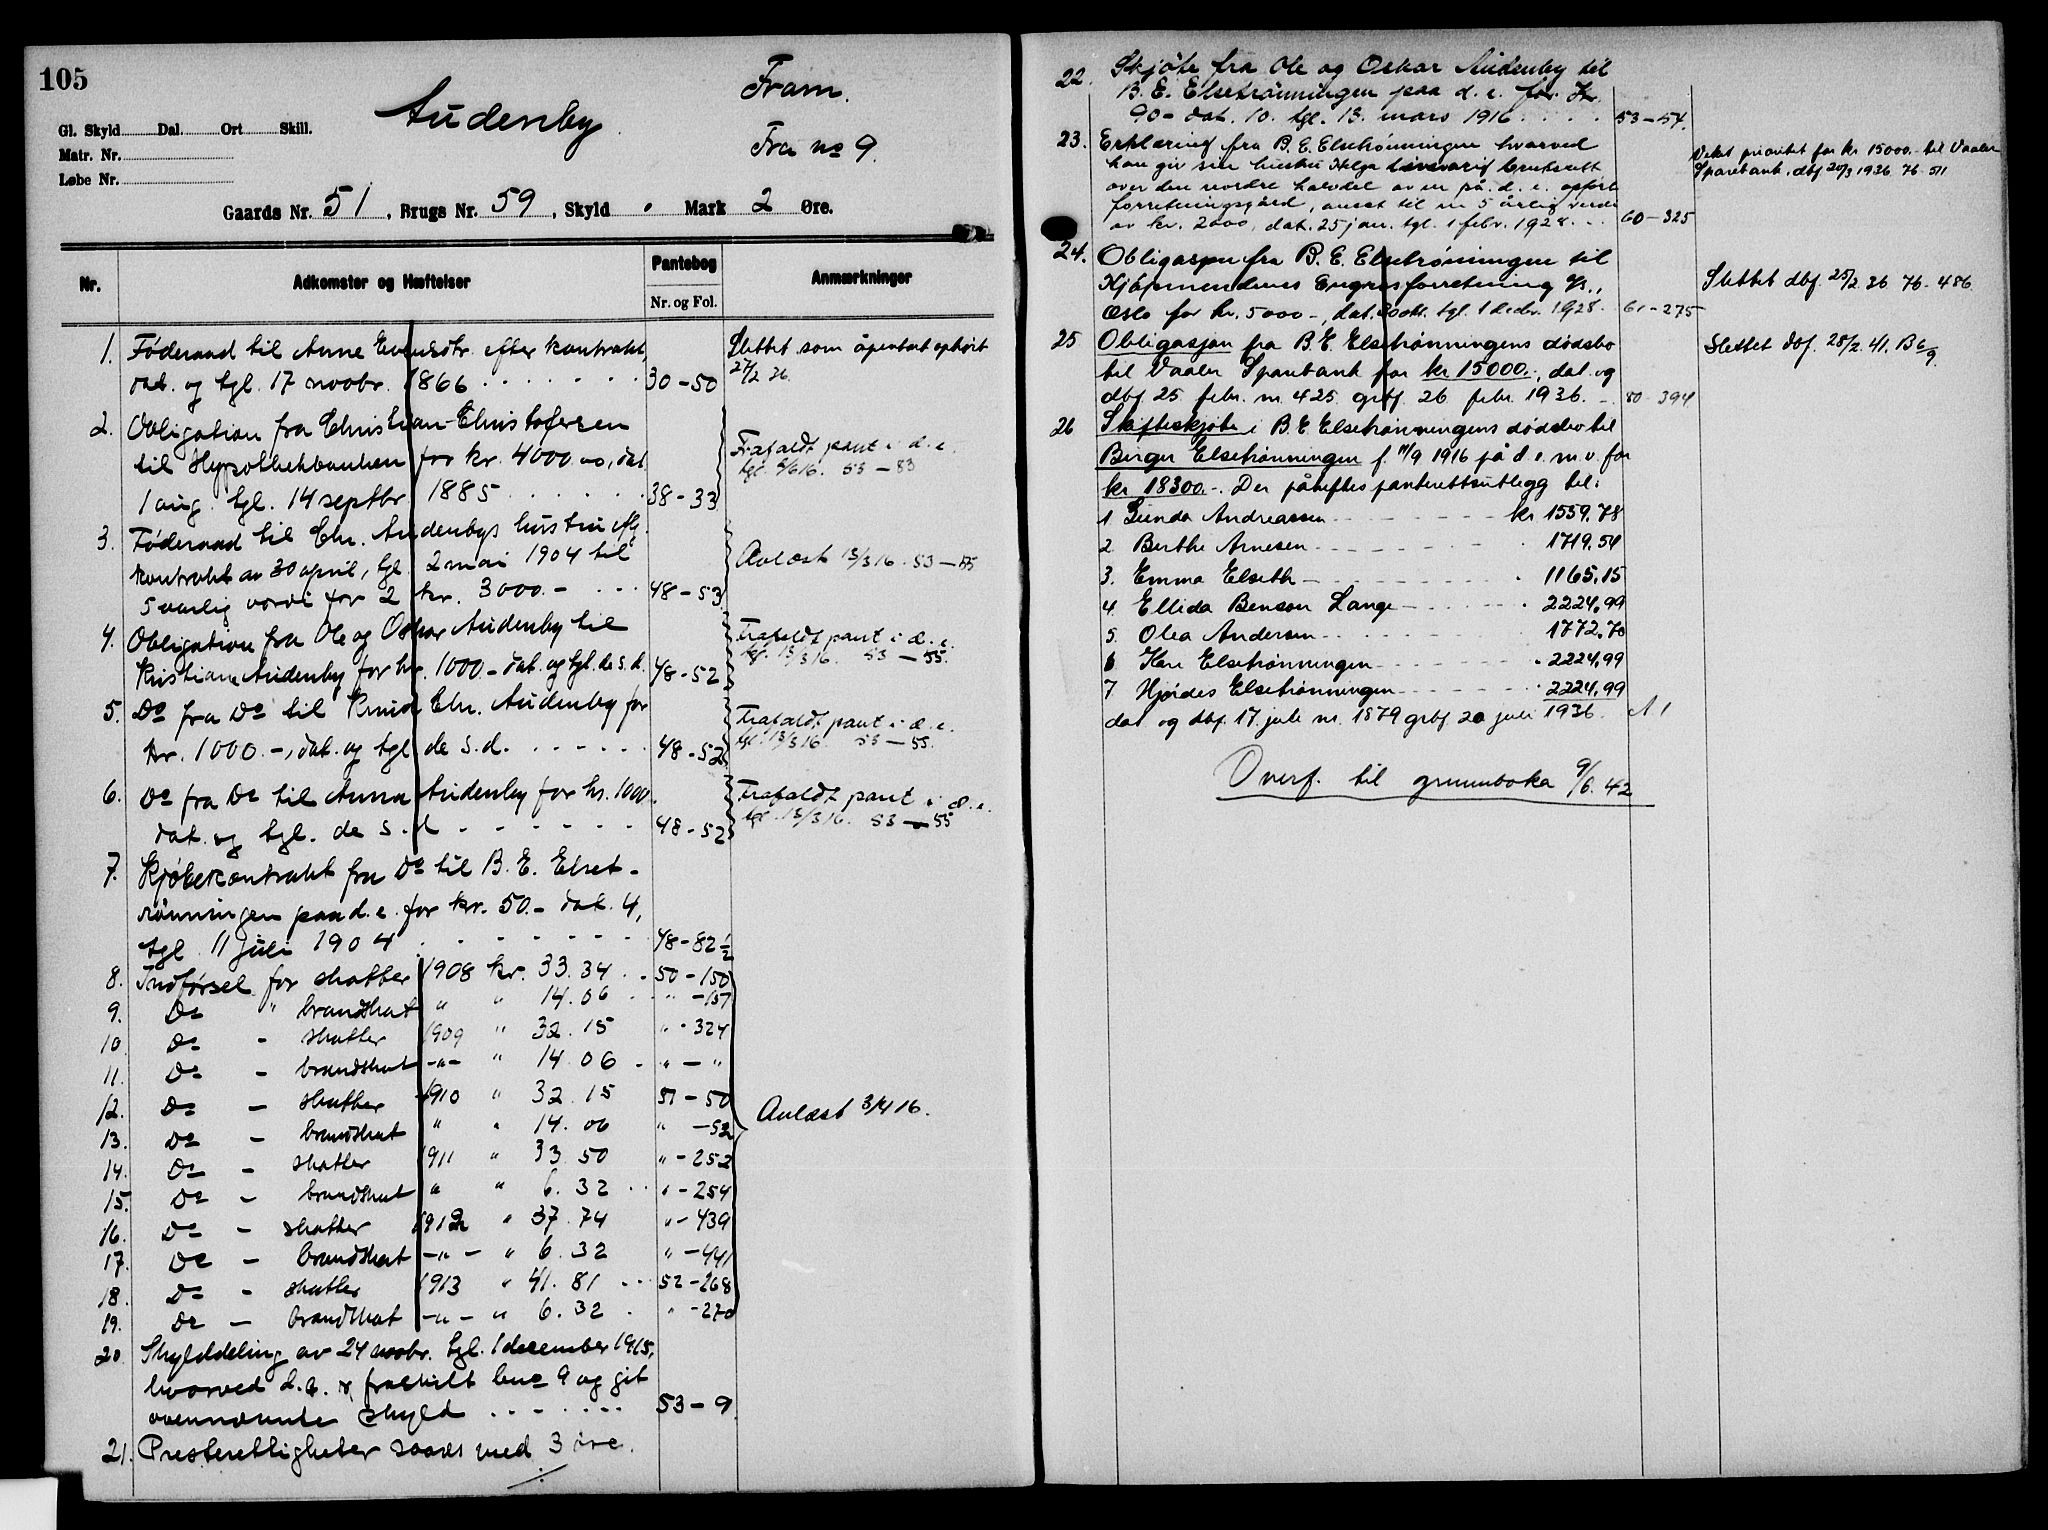 105
Audenby
Fram.
Fra no 9.
Gl. Skyld Dal. Ort Skill.
Matr. Nr.
Løbe Nr.
Gaards Nr. 51, Brugs Nr. 59, Skyld Mark 2 Øre.
Nr. Adkomster og Hæftelser Pantebog Anmærkninger
Nr. og Fol.
1. Føderaad til Anne Evensdtr. efter kontrakt, Slettet som åpenbart ophört
dat. og tgl. 17 novbr. 1866 30-50 27/2 36.
2. Obligation fra Christian Christofersen
til Hypothekbanken for kr. 4000.00, dat. Frafaldt pant i d. e.
1 aug. tgl. 14 septbr. 1885 38-33 tgl. 5/6 16. 53-83
3. Føderaad til Chr. Audenbys hustru efter
kontrakt av 30 april, tgl. 2 mai 1904 til Avlæst 13/3 16. 53-55
5 aarlig værdi for 2 kr. 3000.- 48-53
4. Obligation fra Ole og Oskar Audenby til Frafaldt pant i d. e.
Kristiane Audenby for kr. 1000.- dat. og tgl. de s. d. 48-52 tgl. 13/3 16. 53-55.
5. Do fra Do til Knud Chr. Audenby for Frafaldt pant i d. e.
kr. 1000.-, dat. og tgl. de s. d. 48-52 tgl. 13/3 16. 53-55.
6. Do fra Do til Anna Audenby for kr. 1000. Frafaldt pant i d. e.
dat. og tgl. de s. d. 48-52 tgl. 13/3 16. 53-55
7. Kjøbekontrakt fra Do til B. E. Elset-
rønningen paa d. e. for kr. 50.- dat. 4,
tgl. 11 juli 1904 48-82 1/2
8. Indførsel for skatter 1908 kr. 33.34 50-150
9. Do " brandskat " " 14.06 " -157
10. Do - skatter 1909 " 32.15 " -324
11. Do - brandskat -"- " 14.06 " - "
12. Do - skatter 1910 " 32.15 51-50
13. Do - brandskat " " 14.06 " -52 Avlæst 3/4 16.
14. Do - skatter 1911 " 33.50 " -252
15. Do - brandskat " " 6.32 " -254
16. Do - skatter 1912 " 37.74 " -439
17. Do - brandskat -"- " 6.32 " -441
18. Do - skatter 1913 " 41.81 52-268
19. Do - brandskat -"- " 6.32 " -270
20. Skylddeling av 24 novbr. tgl. 1 december 1915,
hvorved d. e. er fraskilt bno 9 og git
ovennævnte skyld 53-9
21. Presterettigheter svares med 3 øre.
22. Skjöte fra Ole og Oskar Audenby til
B. E. Elsetrönningen paa d. e. for kr.
90- dat. 10. tgl. 13. mars 1916 53-54.
23. Erklæring fra B. E. Elsetrönningen hvorved
han gir sin hustru Helga livsvarig bruksrett Veket prioritet for kr 15000.- til Vaaler
over den nordre halvdel av en på d. e. opført Sparebank, dbf 20/3 1936 76-511
forretningsgård, ansat til en 5 årlig verdi
av kr. 2000, dat. 25 jan. tgl. 1 febr. 1928. 60-325
24. Obligasjon fra B. E. Elsetrönningen til
Kjöpmendenes Engrosforretning A/s., Slettet dbf. 25/2 36 76-486
Oslo for kr. 5000-, dat. 20 okt. tgl. 1 decbr. 1928. 61-275
25 Obligasjon fra B. E. Elsetrönningens dödsbo Slettet dbf. 28/2 41. B 6/9.
til Vaaler Sparebank for kr 15000.-, dat. og
dbf 25 febr. nr. 425 grbf 26 febr. 1936. 80-394
26 Skifteskjöte i B. E. Elsetrönningens dödsbo til
Birger Elsetrönningen f. 11/9 1916 på d. e. m. v. for
kr 18300.-. Der påheftes panterettsutlegg til:
1 Gunda Andreassen kr 1559.78
2. Berthe Arnesen 1719.54
3. Emma Elseth 1165.15
4. Ellida Benson Lange 2224.99
5. Olea Andersen 1772.70
6 Kåre Elsetrönningen 2224.99
7 Hjördes Elsetrönningen 2224.99
dat. og dbf. 17. juli nr. 1879 grbf 20 juli 1936. A 1
Overf. til grunnboka 9/6. 42